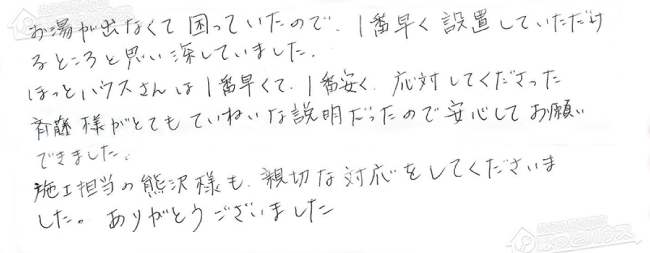 お湯が出なくて困っていたので、1番早く設置していただけ
るところと思い深していました。
ほっとハウスさんは1番早くて、1番安く、応対してくださった
斉藤様がとてもていねいな説明だったので安心してお願い
できました。
施工担当の熊沢様も、親切な対応をしてくださいま
した。ありがとうございました